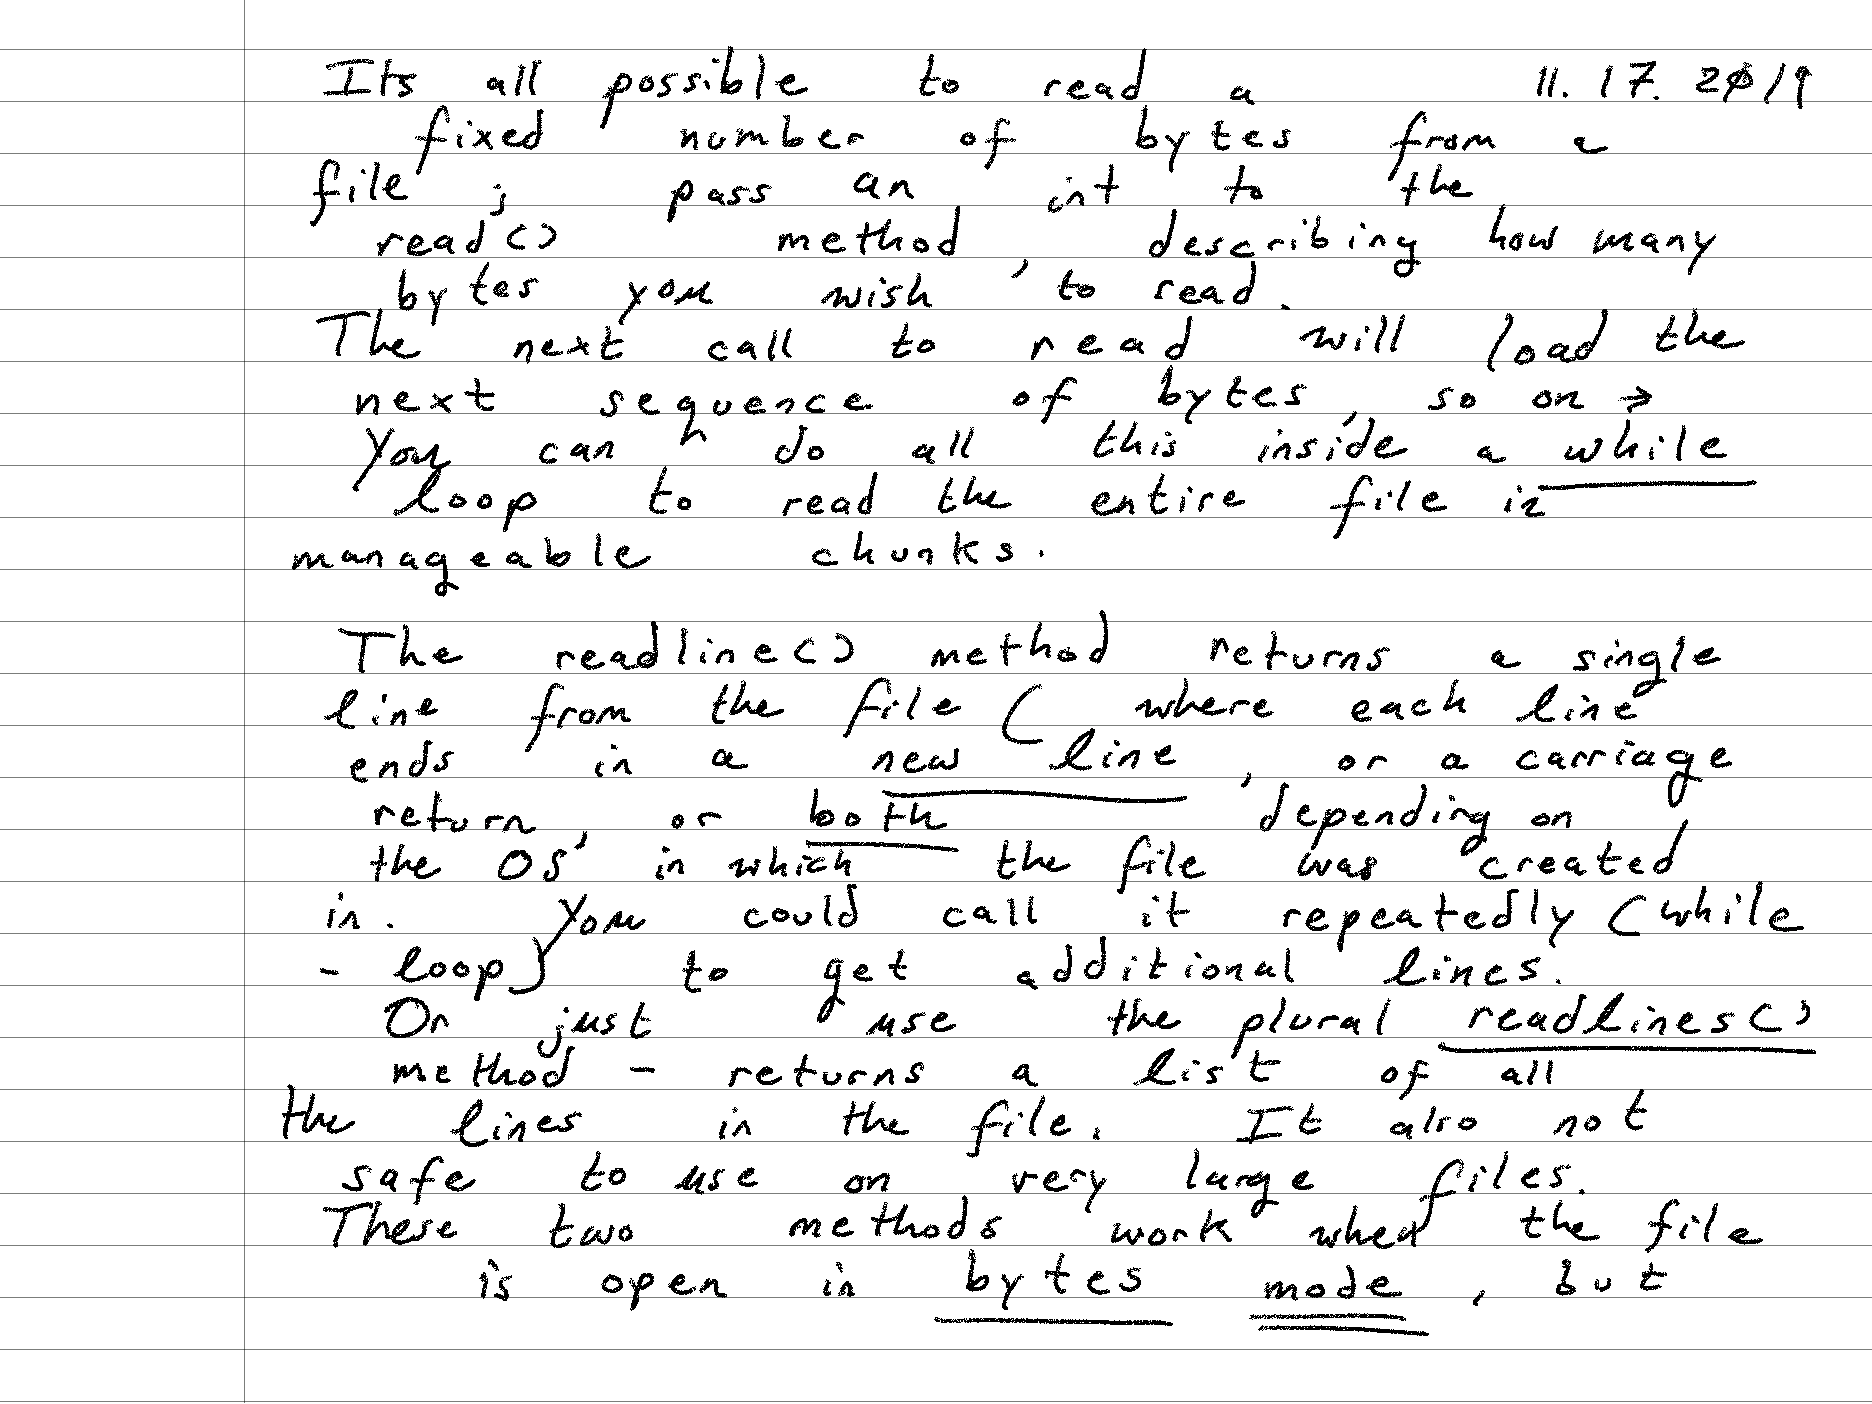 Its all possible to read a 11. 17. 2019
fixed number of bytes from a
file ; pass an int to the
read() method, describing how many
bytes you wish to read.
The next call to read will load the
next sequence of bytes, so on →
You can do all this inside a while
loop to read the entire file in
manageable chunks.
The readline() method returns a single
line from the file ( where each line
ends in a new line, or a carriage
return, or both depending on
the OS in which the file was created
in. You could call it repeatedly (while
- loop) to get additional lines.
Or just use the plural readlines()
method - returns a list of all
the lines in the file. It also not
safe to use on very large files.
These two methods work when the file
is open in bytes mode, but